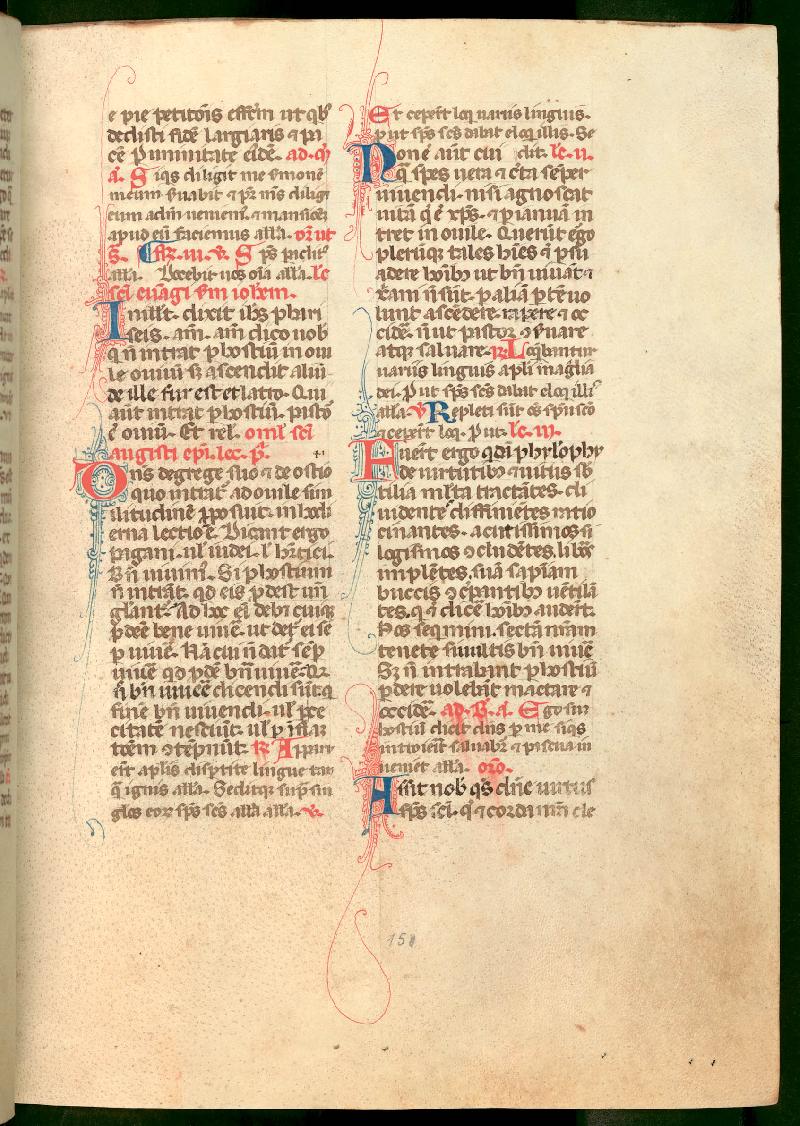 e pie petitōis effēm ut qd̄
dedisti fidē largiaris ⁊ pa
cē P unuitate eidē. ad. m̄
a. Siqs diligit me smonē
meum s̄uabit ⁊ pr̄ m̄s dilig&
eum ad eū veniem. ⁊ mansiōeȝ
apud eū faciemus alla. or̄ ut
s. Fr̄. iii. v̄. Sps paclit᷒
alla. Docebit uos oīa alla. lc̄
sc̄i euāgł sm iohem.
In illt. dixit ihs phari
seis. am̄. am̄ dico uob
qͥ ñ intrat p hostiū in oui
le ouiū sȝ ascendit aliū
de ille fur est et latro. Qui
aūt intrat p hostiū. pastor
ē ouiū. Et rel. oml̄ sc̄i
augusti ep̄i. lec. p̄.
Dn̄s de grege suo ⁊ de ostio
quo intrat᷒ ad ouile sim
ilitudinē pposuit. in hodi
erna lectiōe. Dicant ergo
pagani. ul iudei. l hr̄tici.
Bn̄ uiuim᷒. Si p hostium
ñ intrāt. qd eis pdest un̄
glant᷒. Ad hoc ei debȝ cuiqȝ
pdēe bene uiuē. ut det᷒ ei sēp
p uiuē. Nā cui ñ dat᷒ sēp
uiuē qd pdē bn̄ uiuē. Qr̄
ñ bn̄ uiuēē dicendi sūt. q
finē bn̄ uiuendi. ul ce
citate nesciūt. ul p infla
tōem ↄtēpnūt. R Apparu
erūt aplis dispite lingue tam
q̄ ignis alla. Seditqȝ sup sin
glos eoȝ sps sc̄s alla alla. v̄.
Et ceperūt loq uariis linguis.
put sps sc̄s dabit eloq illis. Se
Non ē aūt cui dit. lc̄. ii.
q̄ spes uera ⁊ c̄ta semper
uiuendi. nisi agnoscat
uitā q ē xps. ⁊ p ianuā in
tret in ouile. Querūt ergo
plerūqȝ tales hoīes ⁊ psu
adere hoībȝ ut bn̄ uiuāt ⁊
xani ñ sint. p aliā ptē uo
lunt ascēdere. rapere ⁊ oc
cidē. ñ ut pastor ↄs̄uare
atqȝ saluare. R Loqbantur
uariis linguis apli magnlia
dei. P ut sps sc̄s dabit eloq illi᷒
alla. V Repleti sūt oēs spu sco
⁊ ceperūt loq. P ut. lc̄. iii.
Fuerūt ergo qdā phylophy
de uirtutibȝ ⁊ uitiis sb
tilia mlta tractātes. di
uidentes diffiniētes ratio
cinantes. acutissimos si
logismos ↄcludētes. libros
implētes. suā sapiam
buccis ↄcrepantibȝ uētilā
tes. q̄ ⁊ dicē hoībȝ audēt.
Nos seqmini. sectā nram
tenete si uultis bn̄ uiuē
Sȝ ñ intrabant p hostiū
pdere uolebāt mactare ⁊
occidē. ad. B. a. Ego sum
hostiū dicit dn̄s p me siqs
introierit saluabit᷒ ⁊ pascua in
ueniet alla. oro.
Assit nob qs dn̄e uirtus
sps sc̄i. q̄ ⁊ corda nra cle
151